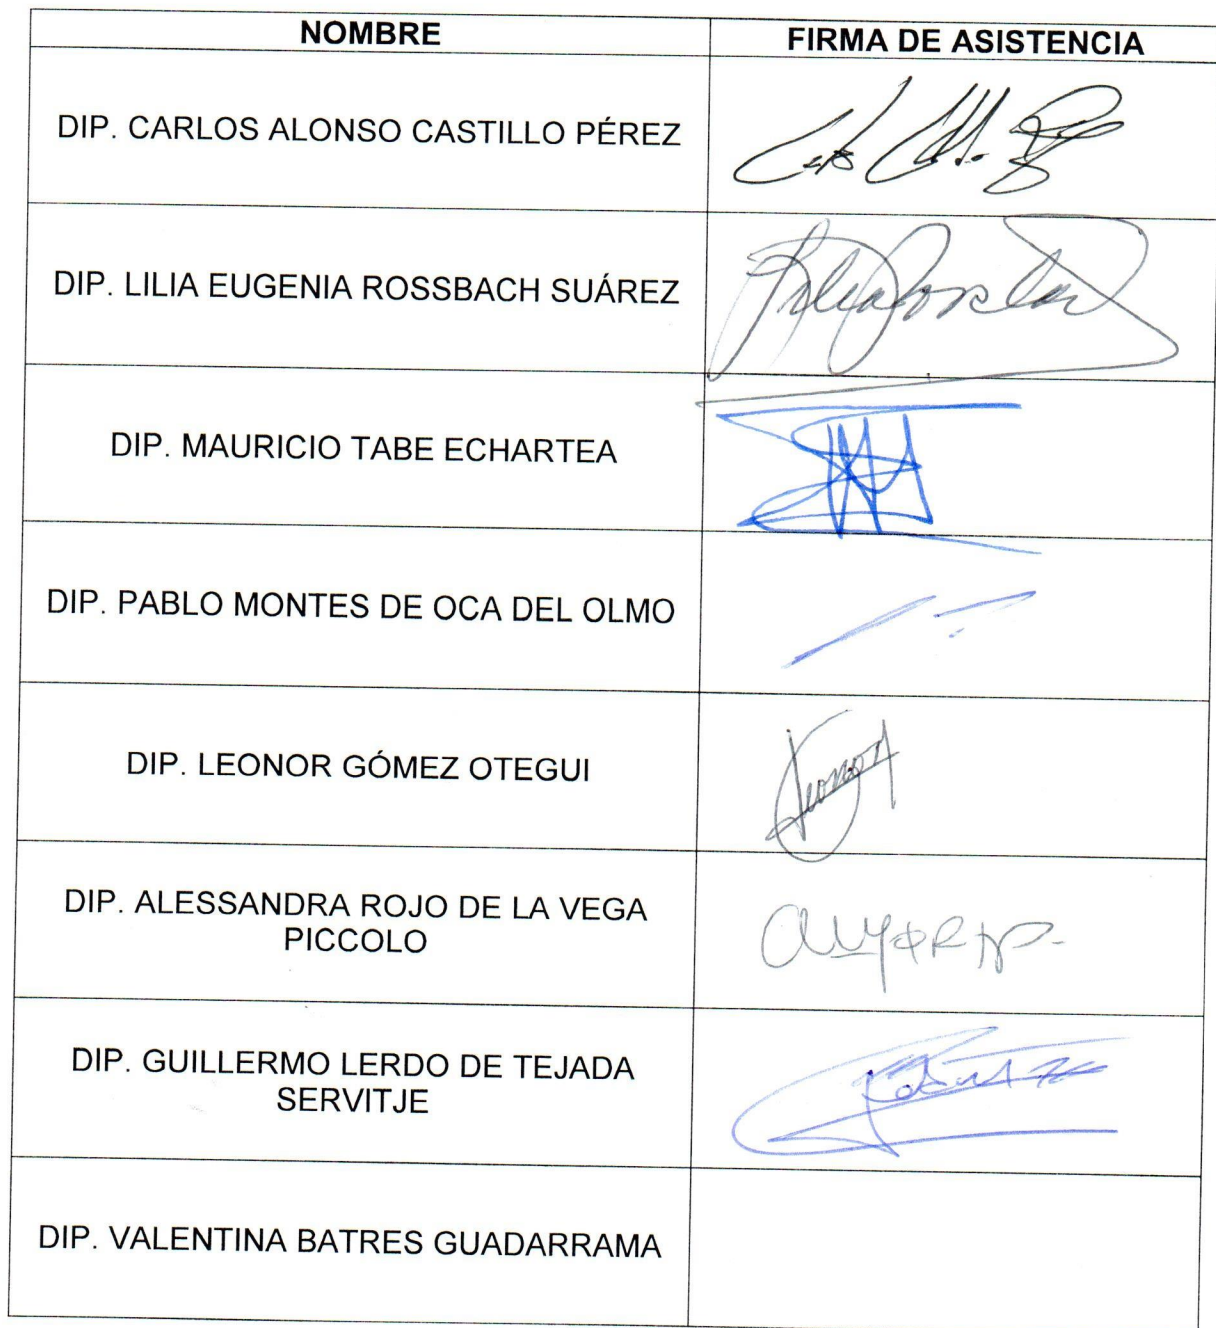 NOMBRE
FIRMA DE ASISTENCIA
DIP. CARLOS ALONSO CASTILLO PÉREZ
DIP. LILIA EUGENIA ROSSBACH SUÁREZ
DIP. MAURICIO TABE ECHARTEA
DIP. PABLO MONTES DE OCA DEL OLMO
DIP. LEONOR GÓMEZ OTEGUI
Leonor
DIP. ALESSANDRA ROJO DE LA VEGA
PICCOLO
DIP. GUILLERMO LERDO DE TEJADA
SERVITJE
DIP. VALENTINA BATRES GUADARRAMA